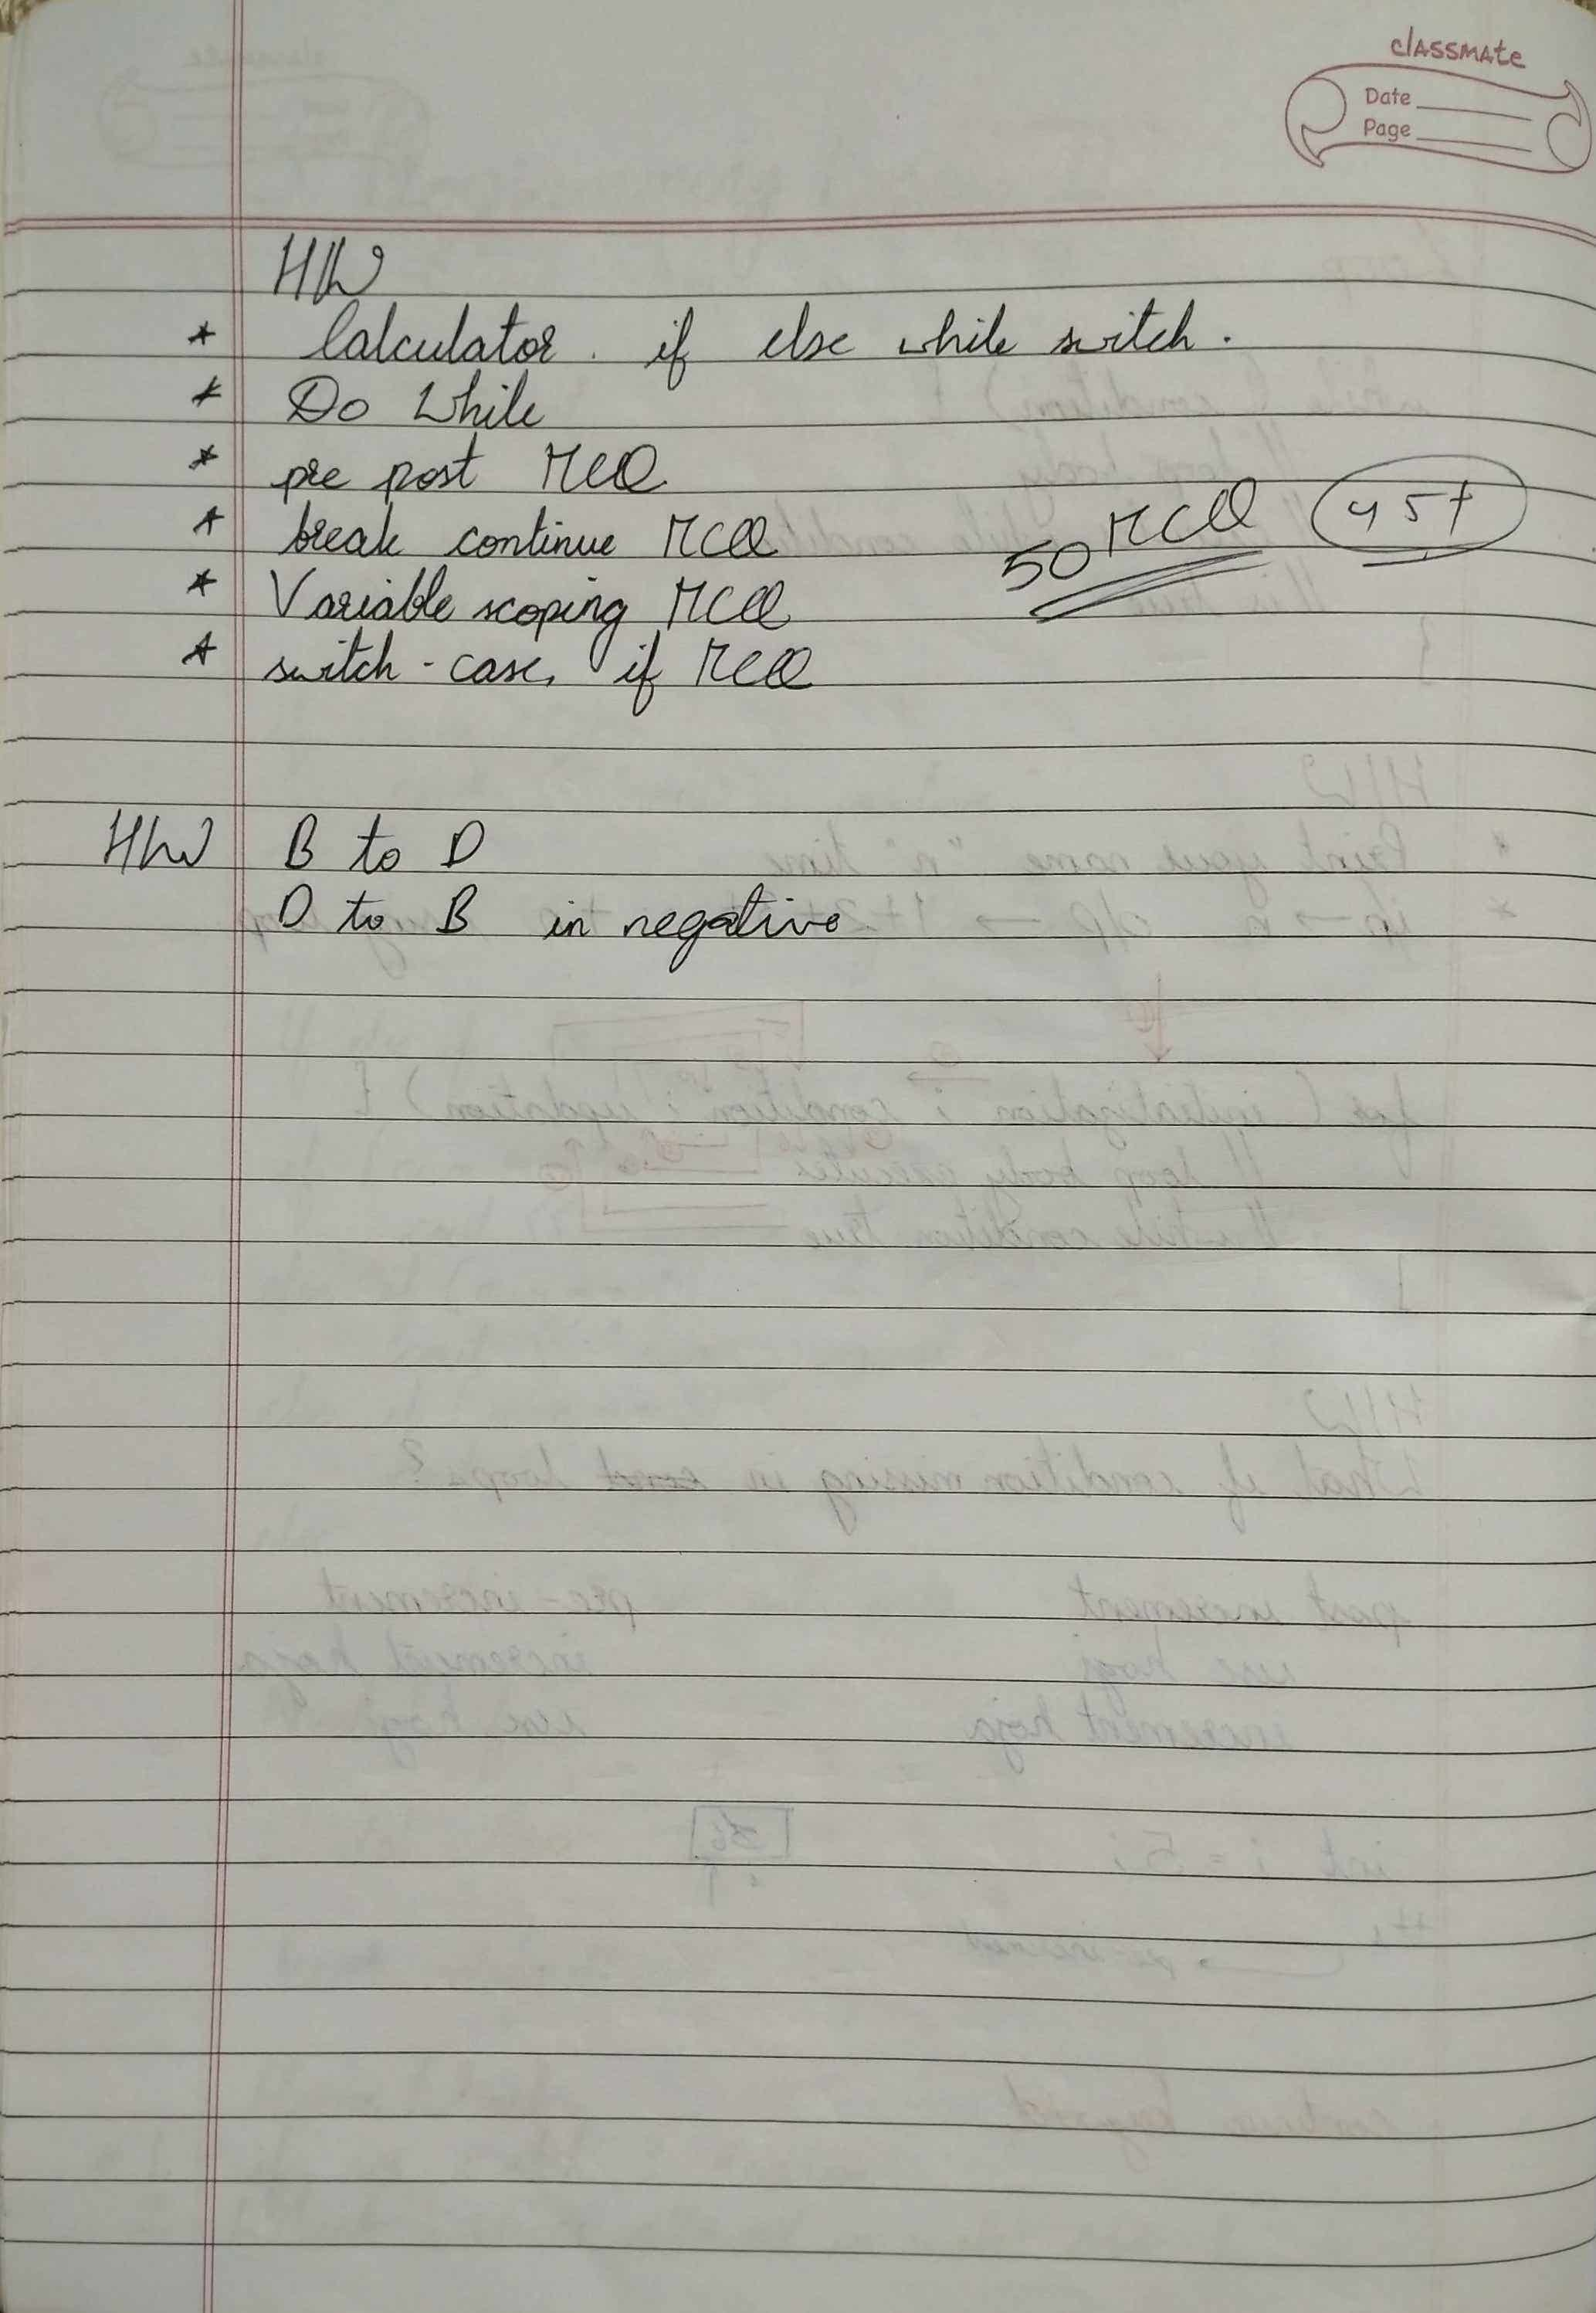 classmate
Date
Page
H/W
* Calculator. if else while switch.
* Do While
* pre post MCQ
* break continue MCQ
50 MCQ 45+
* Variable scoping MCQ
* switch-case, if MCQ
H/W B to D
D to B in negative